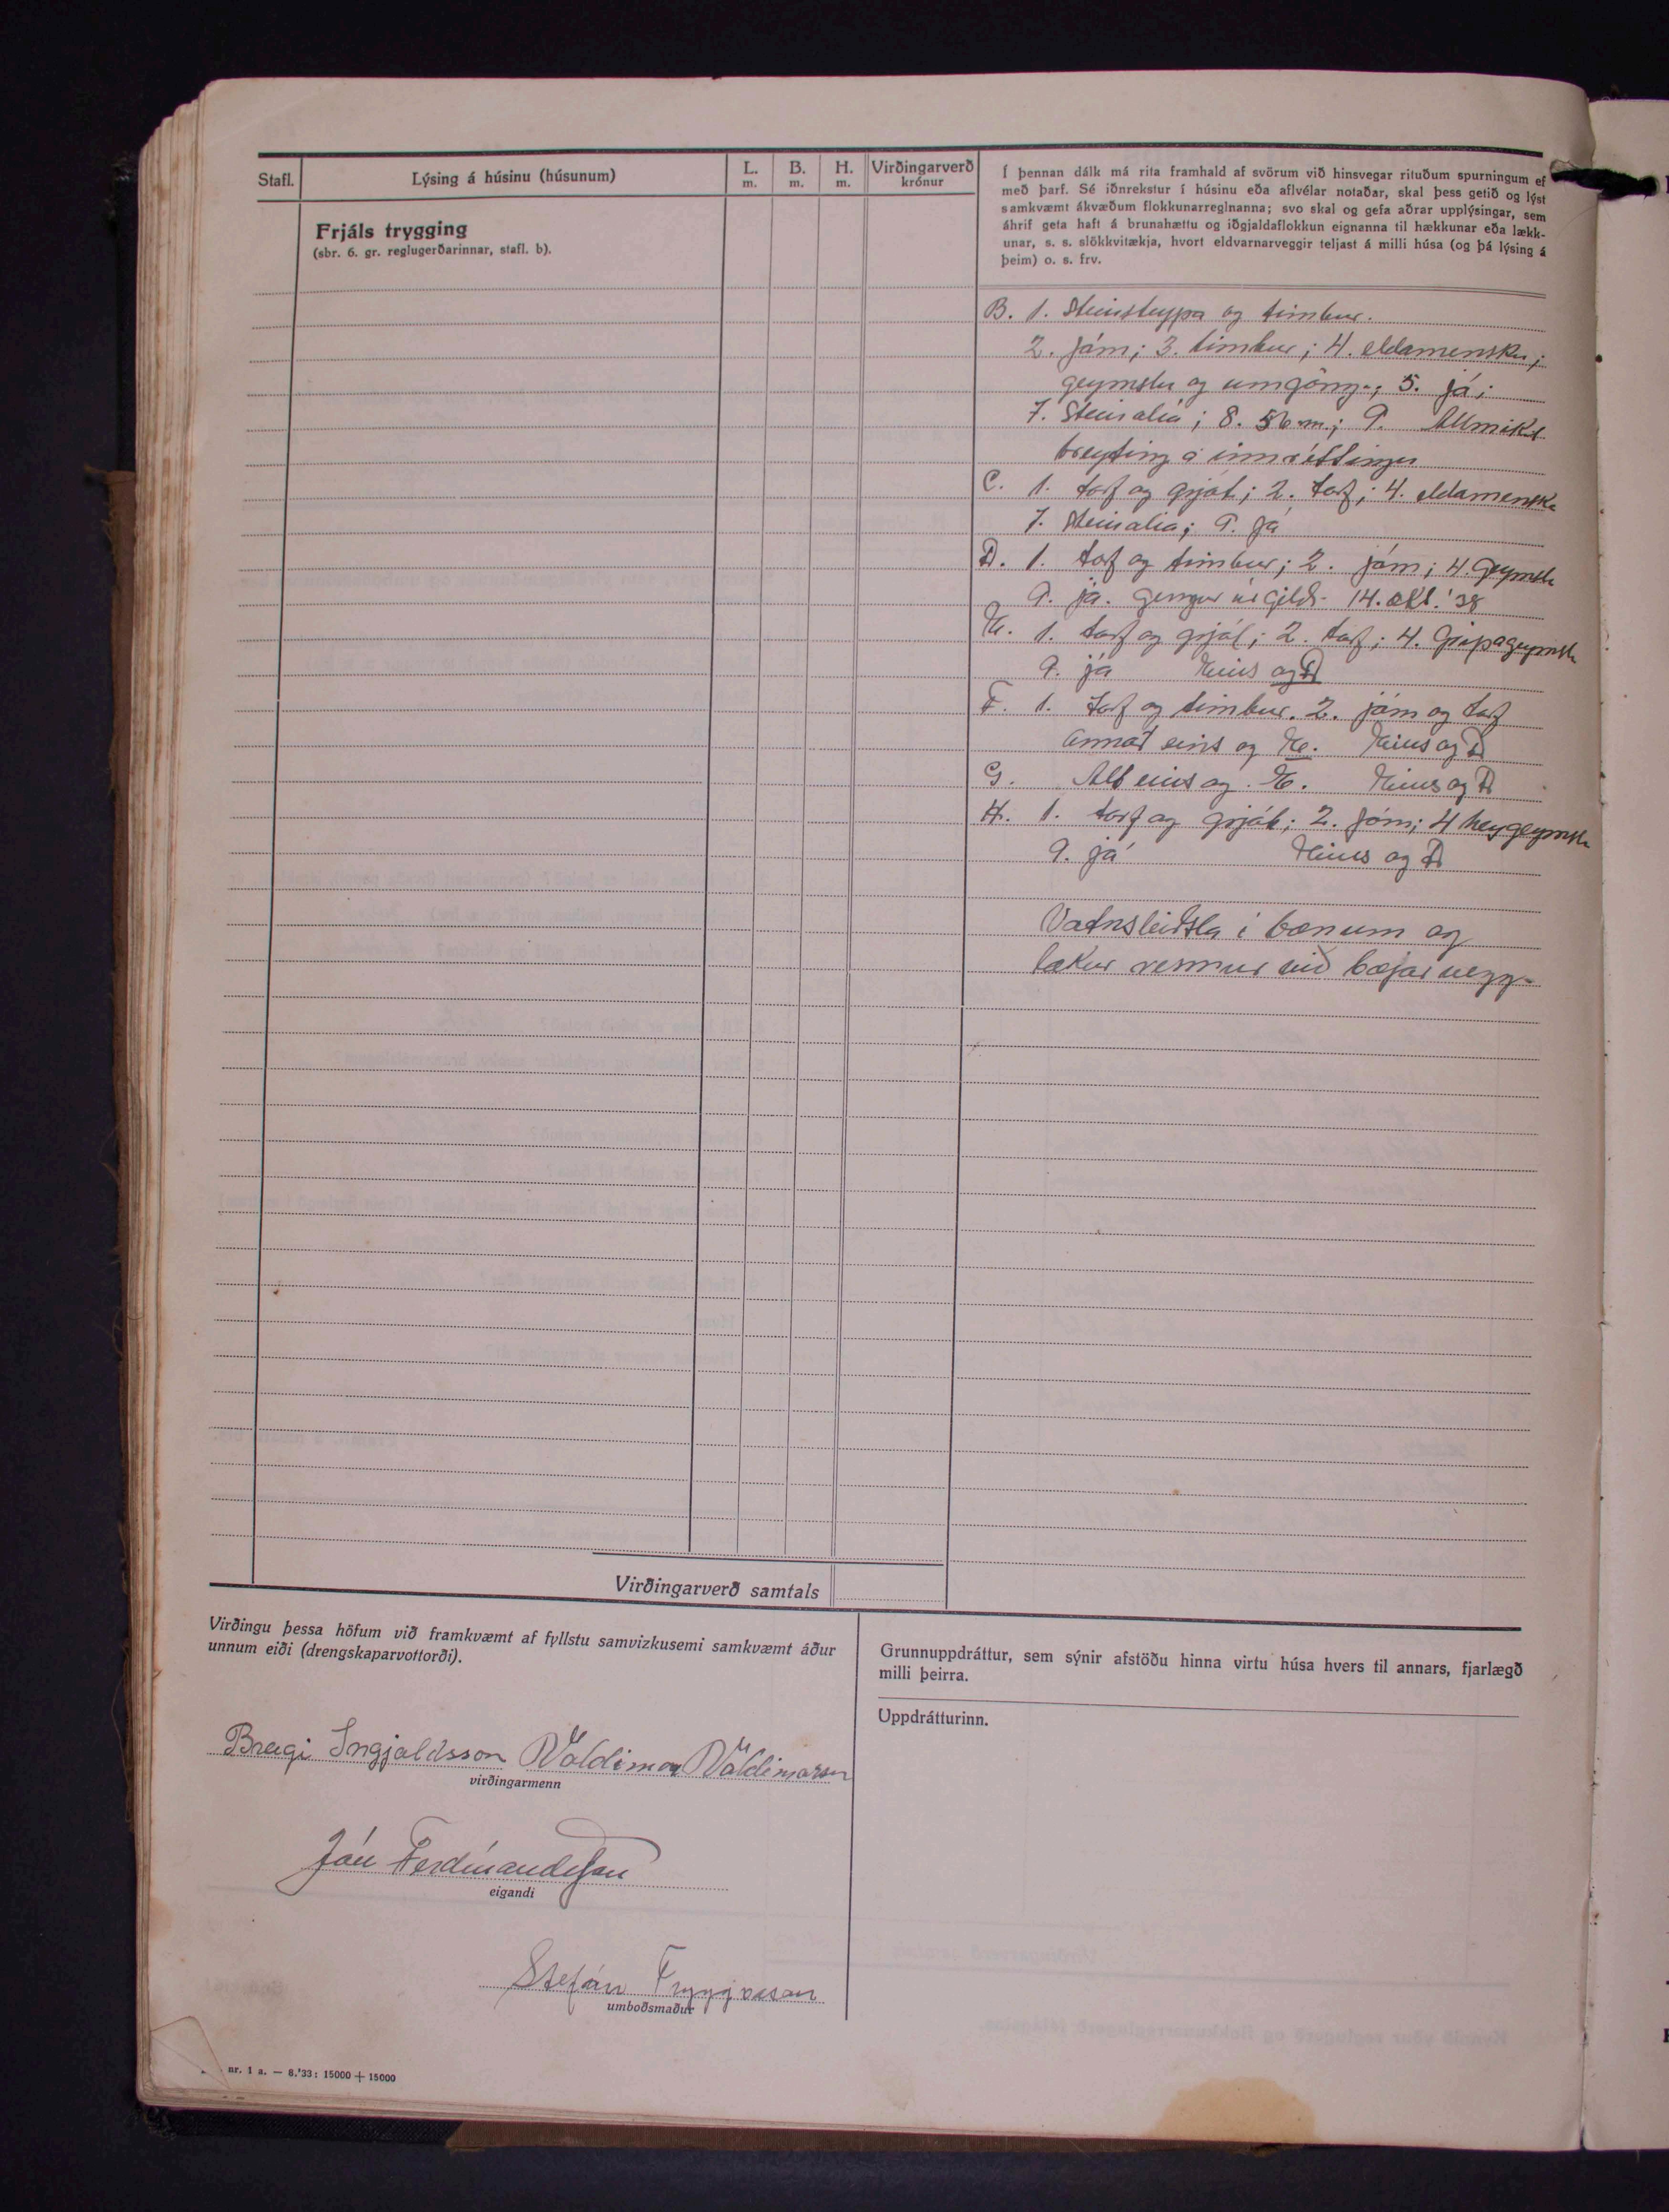 Stafl.
Lýsing á húsinu (húsunum)
L.
m.
B.
m.
H.
m.
Virðingarverð
krónur
Frjáls trygging
(sbr. 6. gr. reglugerðarinnar, stafl. b).
Í þennan dálk má rita framhald af svörum við hinsvegar rituðum spurningum ef
með þarf. Sé iðnrekstur í húsinu eða aflvélar notaðar, skal þess getið og lýst
samkvæmt ákvæðum flokkunarreglnanna; svo skal og gefa aðrar upplýsingar, sem
áhrif geta haft á brunahættu og iðgjaldaflokkun eignanna til hækkunar eða lækk-
unar, s. s. slökkvitækja, hvort eldvarnarveggir teljast á milli húsa (og þá lýsing á
þeim) o. s. frv.
B. 1. Steinsteypa og timbur.
2. járn; 3. timbur; 4. eldamensku;
geymslu og umgöng.; 5. já;
7. Steinolía; 8. 56 m.; 9. Allmikil
breyting á innréttingu
C. 1. torf og grjót; 2. torf; 4. eldamenska
7. Steinolía; 9. já
D. 1. torf og timbur; 2. járn; 4. geymsla
9. já. gengur úr gildi 14. okt. '38
E. 1. torf og grjót; 2. torf; 4. Gripageymsla
9. já Eins og D
F. 1. torf og timbur. 2. járn og torf
annað eins og E. Eins og D
G. Allt eins og E. Eins og D
H. 1. torf og grjót; 2. járn; 4 heygeymsla
9. já Eins og D
Vatnsleiðsla í bænum og
lækur rennur við bæjarvegg
Virðingarverð samtals
Virðingu þessa höfum við framkvæmt af fyllstu samvizkusemi samkvæmt áður
unnum eiði (drengskaparvottorði).
Bragi Ingjaldsson Valdimar Valdimarsson
virðingarmenn
Jón Ferdínandsson
eigandi
Stefán Tryggvason
umboðsmaður
Grunnuppdráttur, sem sýnir afstöðu hinna virtu húsa hvers til annars, fjarlægð
milli þeirra.
Uppdrátturinn.
nr. 1 a. — 8.'33: 15000 + 15000